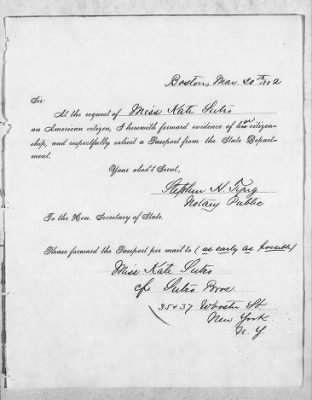 Boston, Mar. 20th 1882
Sir
At the request of Miss Kate Sutro
an American citizen, I herewith forward evidence of her citizen-
ship, and respectfully solicit a Passport from the State Depart-
ment.
Your obed't Servt,
Stephen H. Tyng
Notary Public
To the Hon. Secretary of State.
Please forward the Passport per mail to (as early as possible)
Miss Kate Sutro
c/o Sutro Bros
35 & 37 Wooster St
New York
N. Y